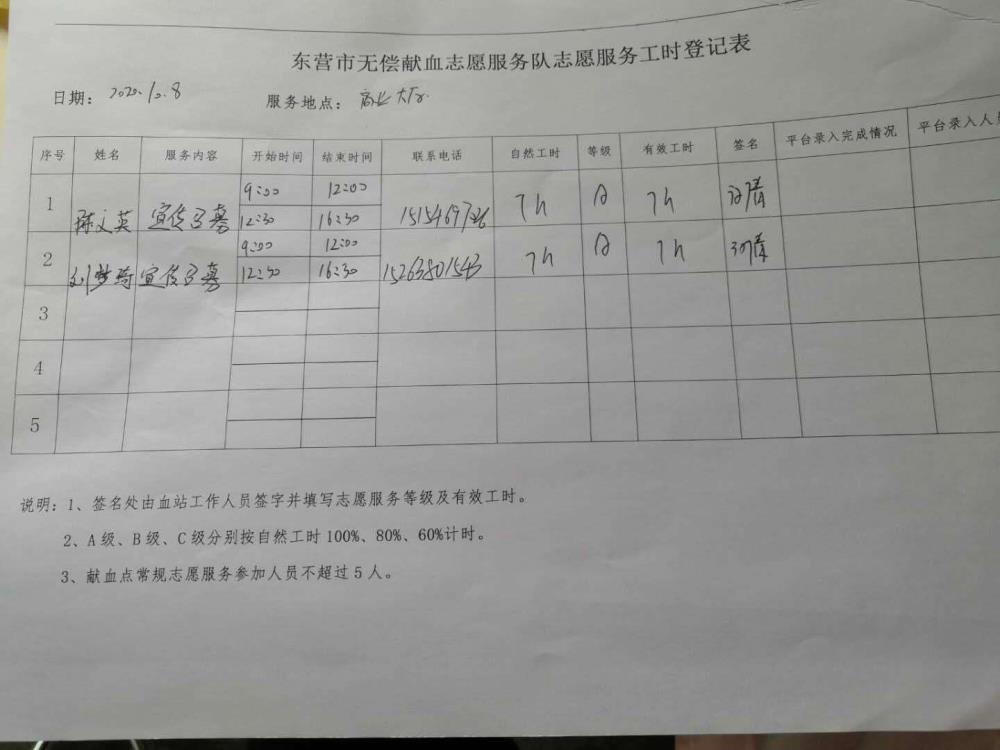 东营市无偿献血志愿服务队志愿服务工时登记表
日期： 2020.10.8 服务地点： 商业大厦
序号 姓名 服务内容 开始时间 结束时间 联系电话 自然工时 等级 有效工时 签名 平台录入完成情况 平台录入人员
9:00 12:00
1 陈文英 宣传招募 7h A 7h
12:30 16:30
9:00 12:00
2 刘梦琦 宣传招募 15263801543 7h A 7h
12:30 16:30
3
4
5
说明：1、签名处由血站工作人员签字并填写志愿服务等级及有效工时。
2、A级、B级、C级分别按自然工时100%、80%、60%计时。
3、献血点常规志愿服务参加人员不超过5人。